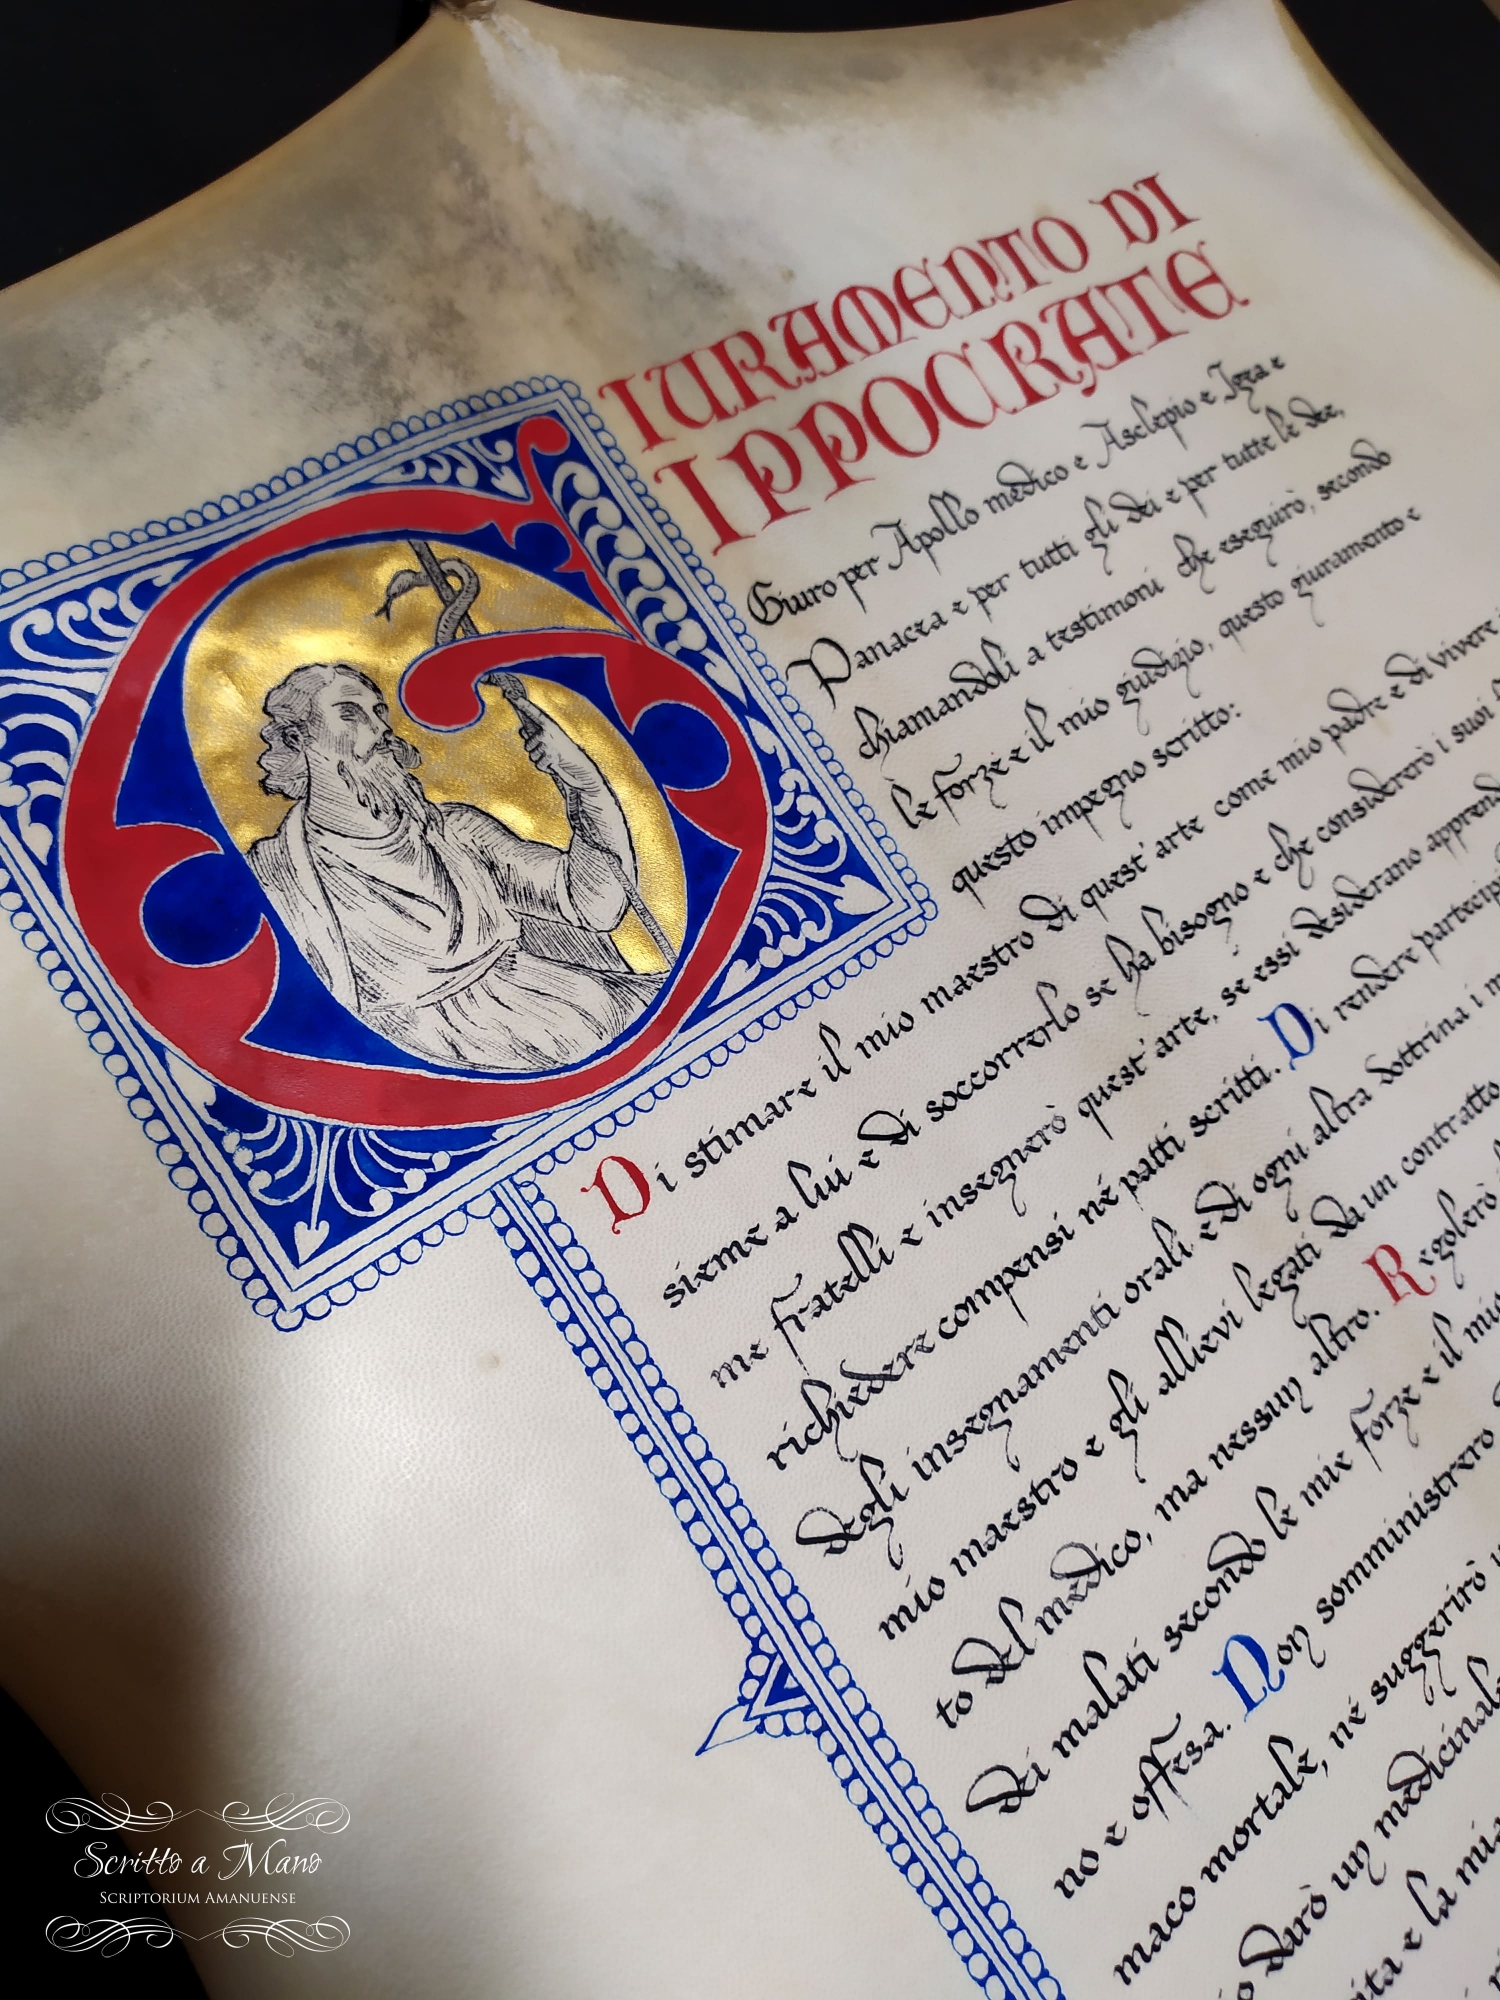 GIURAMENTO DI
IPPOCRATE
Giuro per Apollo medico e Asclepio e Igea e
Panacea e per tutti gli dei e per tutte le dee,
chiamandoli a testimoni che eseguirò, secondo
le forze e il mio giudizio, questo giuramento e
questo impegno scritto:
Di stimare il mio maestro di quest'arte come mio padre e di vivere
sieme a lui e di soccorrerlo se ha bisogno e che considererò i suoi
me fratelli e insegnerò quest'arte, se essi desiderano apprend
richiedere compensi né patti scritti. Di rendere partecipi
degli insegnamenti orali e di ogni altra dottrina i
mio maestro e gli allievi legati da un contratto
to del medico, ma nessun altro. Regolerò
dei malati secondo le mie forze e il mio
no e offesa. Non somministrerò
maco mortale, né suggerirò
darò un medicinale
e la mia
Scritto a Mano
SCRIPTORIUM AMANUENSE